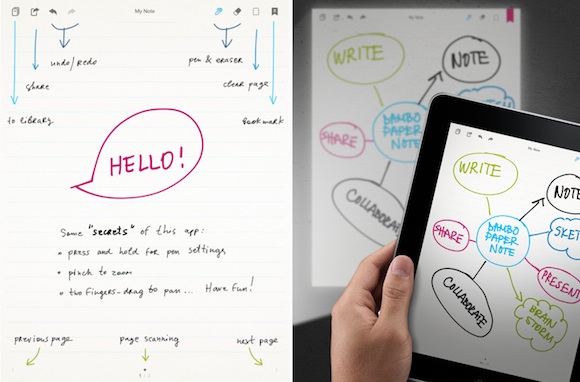 My Note
undo/redo
pen & eraser
share
clear page
to library
bookmark
HELLO!
Some "secrets" of this app:
• press and hold for pen settings
• pinch to zoom
• two fingers-drag to pan... Have Fun!
previous page
page scanning
next page
My Note
WRITE
NOTE
BAMBOO
PAPER
NOTE
SHARE
COLLABORATE
My Note
WRITE
NOTE
SKET
SHARE
BAMBOO
PAPER
NOTE
PRESENT
COLLABORATE
BRAIN
STORM